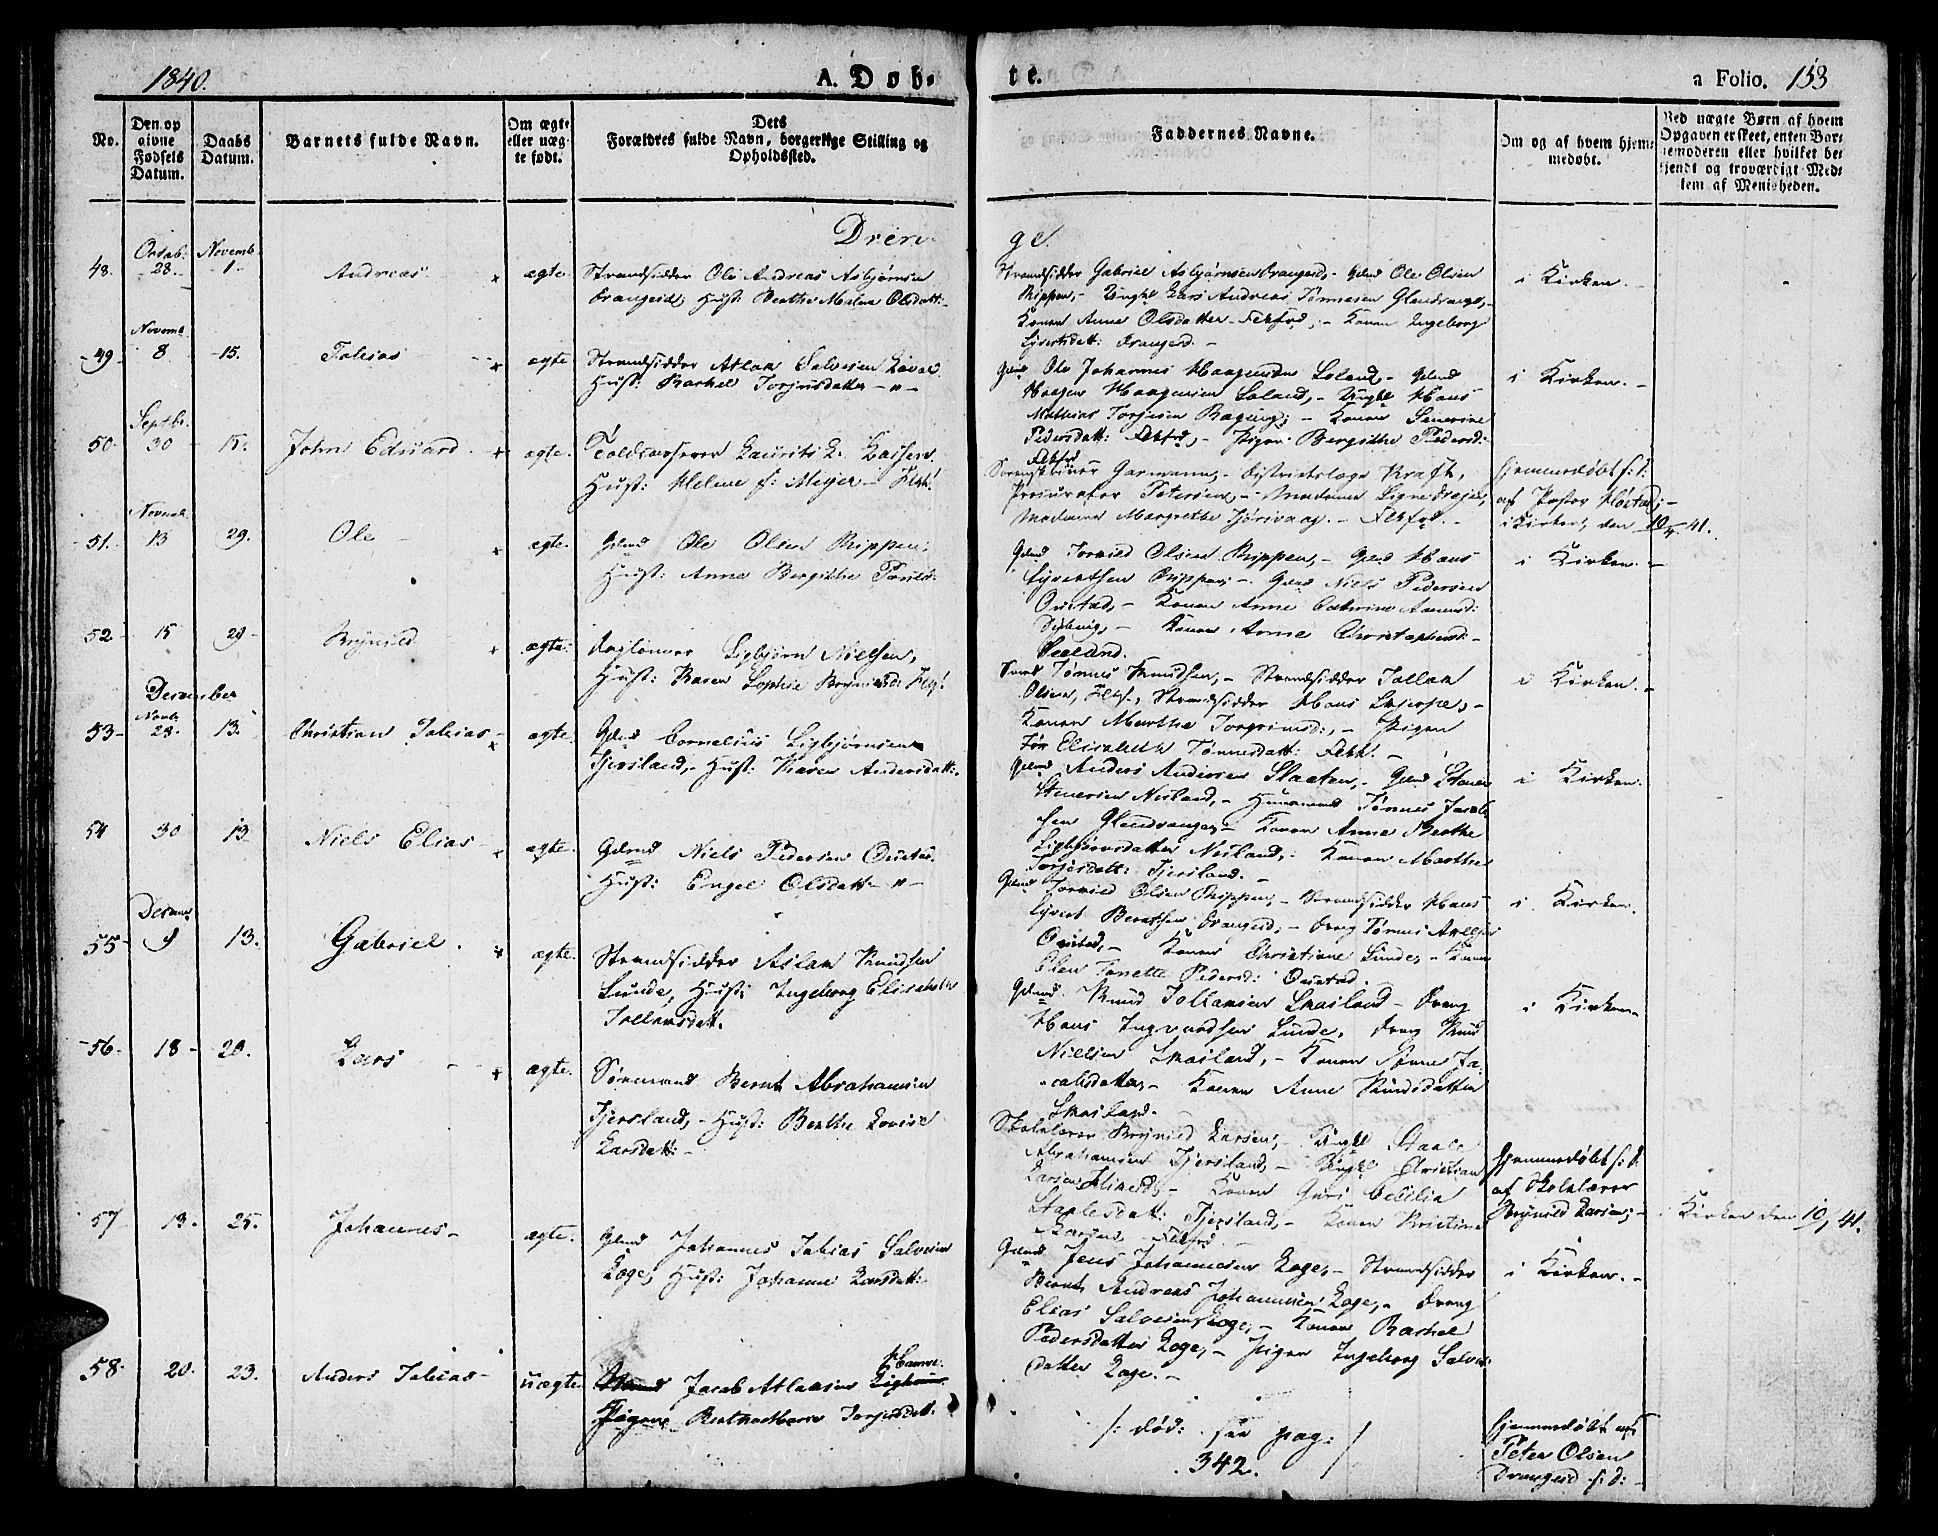 1840.
A. Døb-
te.
a Folio. 153
No.
Den op
givne
Fødsels
Datum.
Daabs
Datum.
Barnets fulde Navn.
Om ægte
eller uæg-
te født.
Dets
Forældres fulde Navn, borgerlige Stilling og
Opholdssted.
Faddernes Navne.
Om og af hvem hjem-
medøbt.
Ved uægte Børn af hvem
Opgaven er skeet, enten Bar-
nemoderen eller hvilket be-
kjendt og troværdigt Med-
lem af Menigheden.
Drenge.
48. Octob: 28. Novemb 1 Andreas ægte
Strandsidder Ole Andreas Asbjørnsen
Drangeid, Hust: Berthe Malene Olsdatt:
Strandsidder Gabriel Asbjørnsen Drangeid, - Gdmd Ole Olsen
Rippen, - Ungkl Lars Andreas Tønnesen Glendrange,
Konen Anne Olsdatter Flekfrd, - Konen Ingeborg
Sjvertsdatt: Drangeid. -
i Kirken. -
49 Novemb 8 15. Tobias ægte
Strandsidder Atlak Salvesen
Hust: Rachel Torjusdatter - " -
Gdmd Ole Johannes Haagensen Loland, - Gdmd
Haagen Haagensen Loland, - Ungkl Hans
Mathias Torjusen - Konen Severine
Pedersdatt: Flekfrd, - Pigen Bergithe Pedersd:
Flekfrd
i Kirken. -
50 Septbr. 30 15. John Eduard ægte.
Toldcasserer Laurits L.
Hust: Helene f: Meyer - Flkf.
Sorenskriver Garmann, - Districtslæge Kraft,
Procurator Petersen, - Madame Signe
Madame Margrethe - Flekfrd. -
Hjemmedøbt s: d.
af Pastor
i Kirken, den 10/ 41.
51. Novemb 13 29. Ole ægte.
Gdmd Ole Olsen Rippen,
Hust: Anne Bergithe
Gdmd Torkild Olsen Rippen, - Gdmd Hans
Sjvertsen Rippen, - Gdmd Niels Pedersen
Qvistad, - Konen Anne Cathrine
Konen Anne Christophersd:
i Kirken. -
52 15 29 Reynild ægte.
Daglønner Sigbjørn Nielsen,
Hust: Karen Sophie Flkf.
Tønnes Knudsen, - Strandsidder Tollak
Olsen, Flkf., Strandsidder Hans
Konen Marthe Torgrimsd:, - Pigen
Elisabeth Tønnesdatt: Flkf. -
i Kirken. -
December
53 Novb 28. 13. Christian Tobias ægte.
Gdmd Cornelius Sigbjørnsen
Tjersland, - Hust: Karen Andersdatt:
Gdmd Anders Andersen Staaten, - Gdmd
Nesland, - Tønnes Jacob-
sen Glendrange, - Konen Anne Berthe
Sigbjørnsdatter Nesland, - Konen Marthe
Torjersdatt: Tjersland. -
i Kirken.
54 30 13 Niels Elias ægte.
Gdmd Niels Pedersen Qvistad.
Hust: Engel Olsdatt - " -
Gdmd Torkild Olsen Rippen, - Strandsidder Hans
Sjvert Berntsen Drangeid, - Dreng Tønnes
Qvistad, - Konen Christiane Lunde, - Konen
Elen Tonette Pedersd: Qvistad.
i Kirken.
55 Decemb 9 13. Gabriel ægte.
Strandsidder Aslak Knudsen
Lunde, Hust: Ingeborg Elisabeth
Tollaksdatt.
Gdmd. Knud Tollaksen Skailand - Dreng
Hans Ingvardsen Lunde, Dreng Knud
Nielsen Skailand, - Konen Anne Ja-
cobsdatter, - Konen Anne Knudsdatter
Skailand.
i Kirken
56. 18 20. Lars ægte.
Sømand Bernt Abrahamsen
Tjersland, - Hust: Berthe Lovise
Larsdatt: -
Skolelærer Reynild Larsen, - Ungkl Staale
Abrahamsen Tjersland, - Ungkl Christian
Larsen - Konen Guri Cecilia
Staalesdatt: Tjersland, - Konen Kristine
Flekfrd
Hjemmedøbt s: d.
af Skolelærer
Reynild Larsen; -
i Kirken den 10/ 41.
57 13. 25. Johannes ægte.
Gdmd Johannes Tobias Salvesen
Loge, Hust: Johanne Larsdatt:
Gdmd Jens Johannesen Loge, - Strandsidder
Bernt Andreas Johannesen Loge, - Dreng
Elias Salvesen Loge, - Konen Rachel
Pedersdatter Loge, - Pigen Ingeborg Salves-
datter Loge. -
i Kirken. -
58 20. 23. Anders Tobias uægte.
Jacob Atlaksen
Pigen Torjersdatt:
/: død: see pag: /
342.
Hjemmedøbt af
Peter Olsen
Drangeid s: d: -